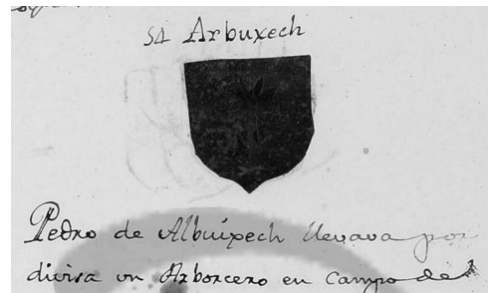 54 Arbuxech
Pedro de Albuixech llevava por
divisa un Arborcero en Campo de